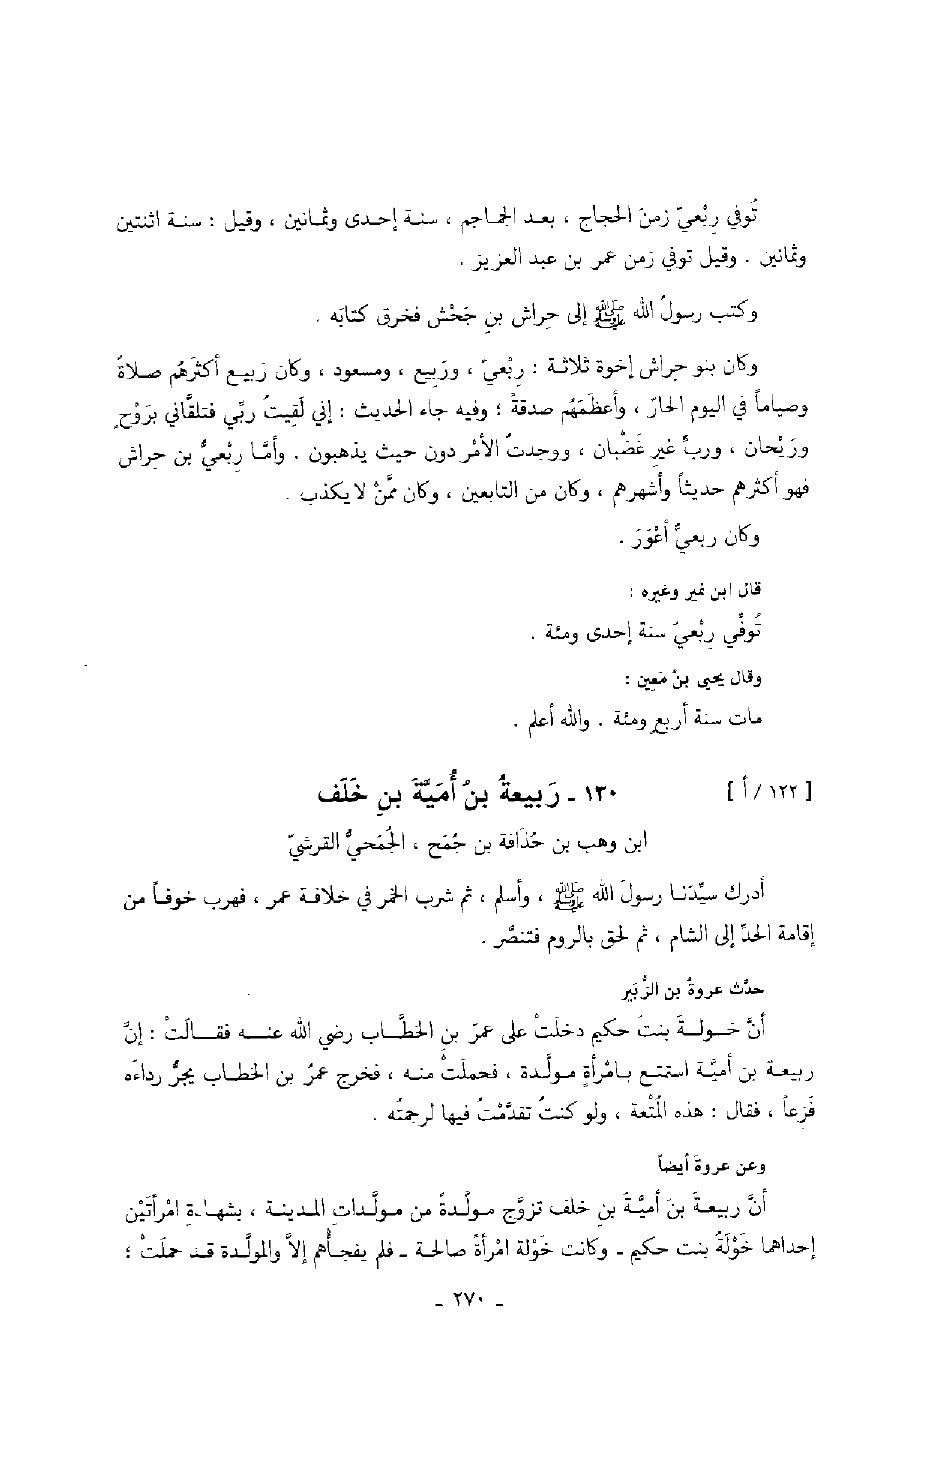 تُوفي رِبْعيّ زمنَ الحجاج ، بعد الجماجم ، سنة إحدى وثمانين ، وقيل : سنة اثنتين
وثمانين . وقيل توفي زمن عمر بن عبد العزيز .
وكتب رسولُ الله ﷺ إلى حِراش بنِ جَحْش فخرق كتابَه .
وكان بنو حِراش إخوة ثلاثة : رِبْعيّ ، ورَبيع ، ومسعود ، وكان رَبيع أكثرَهُم صلاةً
وصياماً في اليوم الحارّ ، وأعظمَهُم صدقةً ؛ وفيه جاء الحديث : إني لَقِيتُ ربِّي فتلقَّاني بَروْحٍ
ورَيْحان ، وربٍّ غيرِ غَضْبان ، ووجدتُ الأمْر دون حيث يذهبون . وأمَّا رِبْعيُّ بن حِراش
فهو أكثرهم حديثاً وأشهرهم ، وكان من التابعين ، وكان ممَّنْ لا يكذب .
وكان ربعيٌّ أعْوَرَ .
قال ابن نمير وغيره :
تُوفِّي رِبْعيّ سنة إحدى ومئة .
وقال يحيى بنُ مَعين :
مات سنة أربع ومئة . والله أعلم .
[ ١٢٢ / أ ] ١٢٠ - رَبيعةُ بنُ أُمَيَّةَ بنِ خَلَف
ابن وهب بن حُذَافة بن جُمَح ، الجُمَحيُّ القرشيّ
أدرك سيِّدَنا رسولَ الله ﷺ ، وأسلم ، ثم شرب الخمر في خلافة عمر ، فهرب خوفاً من
إقامة الحدّ إلى الشام ، ثم لحق بالروم فتنصَّر .
حدَّث عروةُ بن الزُّبَير
أنَّ خولةَ بنتَ حكيم دخلتْ على عمرَ بن الخطَّاب رضي الله عنه فقالتْ : إنَّ
ربيعة بن أميَّة استمتع بامْرأةٍ مولَّدة ، فحملتْ منه ، فخرج عمرُ بن الخطاب يجرُّ رداءَه
فَزِعاً ، فقال : هذه المُتْعة ، ولو كنتُ تقدَّمْتُ فيها لرجمتُه .
وعن عروةَ أيضاً
أنَّ ربيعةَ بنَ أميَّةَ بنِ خلف تزوَّج مولَّدةً من مولَّداتِ المدينة ، بشهادةِ امْرأتَيْن
إحداهما خَوْلَةُ بنت حكيم - وكانت خَوْلة امْرأةً صالحة - فلم يفجأْهم إلاَّ والمولَّدة قد حملتْ ؛
- ٢٧٠ -